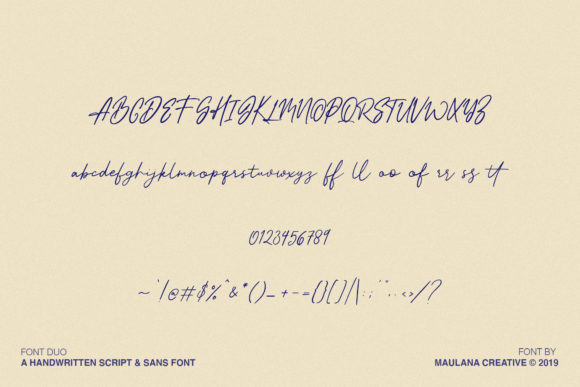 ABCDEFGHIJKLMNOPQRSTUVWXYZ
abcdefghijklmnopqrstuvwxyz ff ll oo of rr ss tt
0123456789
~`!@#$%^&*()_+-={}[]/|\:;"'..<>/?
FONT DUO
A HANDWRITTEN SCRIPT & SANS FONT
FONT BY
MAULANA CREATIVE © 2019